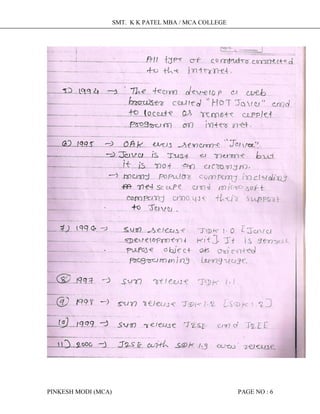 SMT. K K PATEL MBA / MCA COLLEGE
All type of computers connected
to the internet.
5) 1994 → The team develop a web
browser called "HOT Java" and
to locate as remote applet
Program on internet.
6) 1995 → OAK was rename "Java".
→ Java is Just a name but
it is not an acronym.
→ many Popular company including
net scape and microsoft
company announce their support
to Java.
7) 1996 → Sun release JDK 1.0 [Java
development kit]. It is general
purpose object oriented
Programming language.
8) 1997 → Sun release JDK 1.1
9) 1998 → Sun release JDK 1.2 [SDK 1.2]
10) 1999 → Sun release J2SE and J2EE
11) 2000 → J2SE with SDK 1.3 was release
PINKESH MODI (MCA) PAGE NO : 6